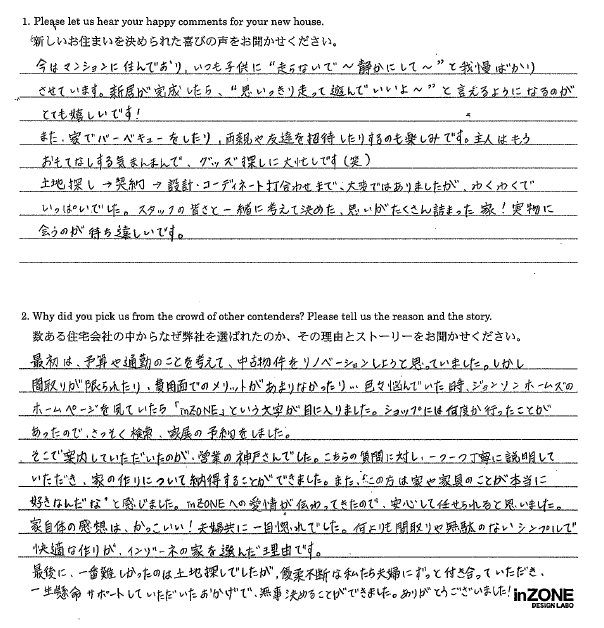 1. Please let us hear your happy comments for your new house.
新しいお住まいを決められた喜びの声をお聞かせください。
今はマンションに住んでおり、いつも子供に“走らないで～静かにして～”と我慢ばかり
させています。新居が完成したら、“思いっきり走って遊んでいいよ～”と言えるようになるのが
とても嬉しいです!
また、家でバーベキューをしたり、両親や友達を招待したりするのも楽しみです。主人はもう
おもてなしする気まんまんで、グッズ探しに大忙しです(笑)
土地探し→契約→設計・コーディネート打合わせまで、大変ではありましたが、わくわくで
いっぱいでした。スタッフの皆さと一緒に考えて決めた、思いがたくさん詰まった家!実物に
会うのが待ち遠しいです。
2. Why did you pick us from the crowd of other contenders? Please tell us the reason and the story.
数ある住宅会社の中からなぜ弊社を選ばれたのか、その理由とストーリーをお聞かせください。
最初は、予算や通勤のことを考えて、中古物件をリノベーションしようと思っていました。しかし
間取りが限られたり、費用面でのメリットがあまりなかったり…色々悩んでいた時、ジョンソンホームズの
ホームページを見ていたら「inZONE」という文字が目に入りました。ショップには何度か行ったことが
あったので、さっそく検索、家展の予約をしました。
そこで案内していただいたのが、営業の神戸さんでした。こちらの質問に対し、一つ一つ丁寧に説明して
いただき、家の作りについて納得することができました。また、“この方は家や家具のことが本当に
好きなんだな”と感じました。inZONEへの愛情が伝わってきたので、安心して任せられると思いました。
家自体の感想は、かっこいい!夫婦共に一目惚れでした。何よりも間取りや無駄のないシンプルで
快適な作りが、インゾーネの家を選んだ理由です。
最後に、一番難しかったのは土地探しでしたが、優柔不断な私たち夫婦にずっと付き合っていただき、
一生懸命サポートしていただいたおかげで、無事決めることができました。ありがとうございました!
inZONE
DESIGN LABO